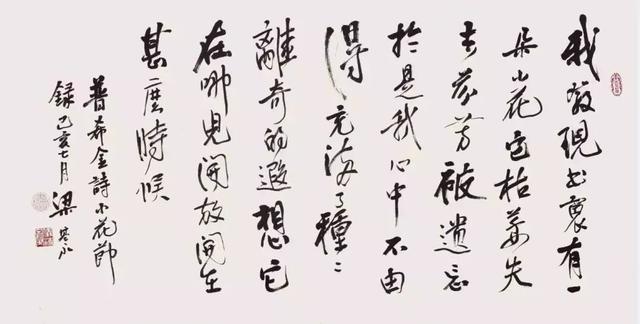 我發現書裏有一
朵小花它枯萎失
去芬芳被遺忘
於是我心中不由
得充滿了種〻
離奇的遐想它
在哪兒開放開在
甚麼時候
普希金詩小花節
錄己亥七月梁永